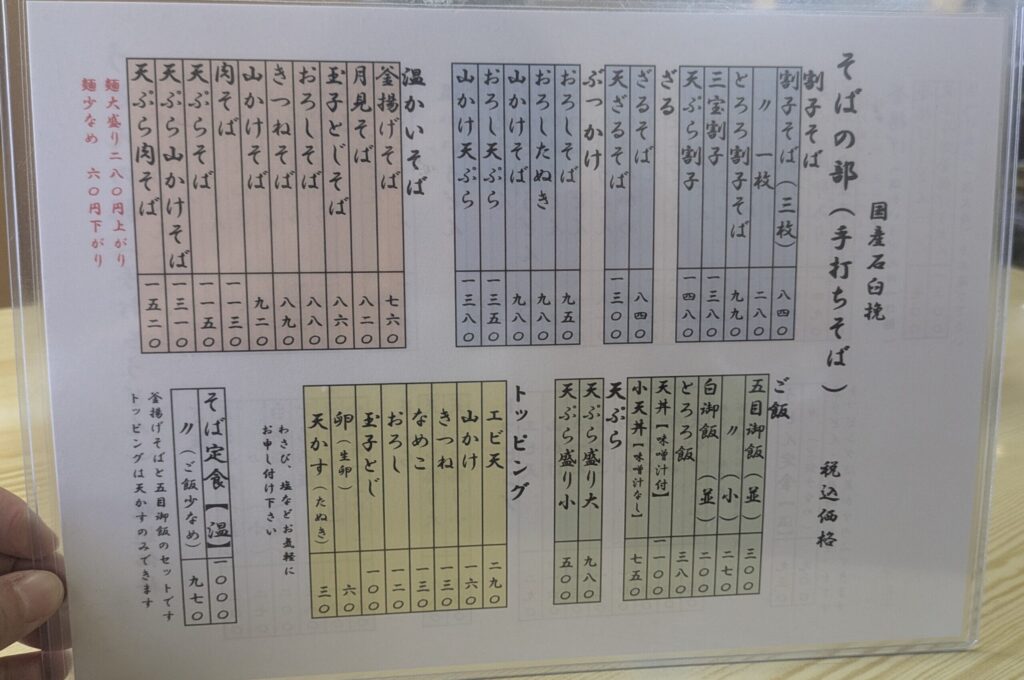 国産石臼挽
そばの部(手打ちそば)
税込価格
割子そば
割子そば(三枚) 八四〇
〃 一枚 二八〇
とろろ割子そば 九九〇
三宝割子 一三八〇
天ぷら割子 一四八〇
ざる
ざるそば 八四〇
天ざるそば 一三〇〇
ぶっかけ
おろしそば 九五〇
おろしたぬき 九八〇
山かけそば 九八〇
おろし天ぷら 一三五〇
山かけ天ぷら 一三八〇
温かいそば
釜揚げそば 七六〇
月見そば 八二〇
玉子とじそば 八六〇
おろしそば 八八〇
きつねそば 八九〇
山かけそば 九二〇
肉そば 一一三〇
天ぷらそば 一一五〇
天ぷら山かけそば 一三一〇
天ぷら肉そば 一五二〇
麺大盛り二八〇円上がり
麺少なめ 六〇円下がり
ご飯
五目御飯(並) 三〇〇
〃 (小) 二七〇
白御飯 (並) 二〇〇
とろろ飯 三八〇
天丼【味噌汁付】 一一〇〇
小天丼【味噌汁なし】 七五〇
天ぷら
天ぷら盛り大 九八〇
天ぷら盛り小 五〇〇
トッピング
エビ天 二九〇
山かけ 一六〇
きつね 一三〇
なめこ 一三〇
おろし 一二〇
玉子とじ 一〇〇
卵(生卵) 六〇
天かす(たぬき) 三〇
わさび、塩などお気軽に
お申し付け下さい
そば定食【温】 一〇〇〇
〃 (ご飯少なめ) 九七〇
釜揚げそばと五目御飯のセットです
トッピングは天かすのみできます